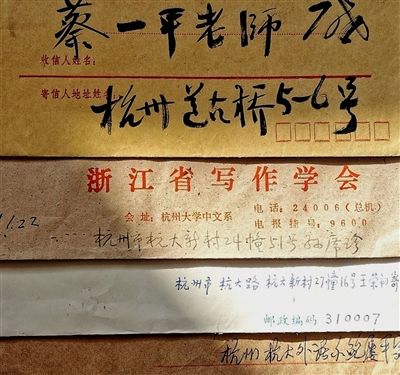 蔡一平老师 启
收信人姓名:
寄信人地址姓名
杭州道古桥5-6号
浙江省写作学会
会址: 杭州大学中文系
电话: 24006 (总机)
电报挂号: 9600
1.22
杭州市杭大新村24幢51号孙席珍
杭州市 杭大路 杭大新村27幢16号王荣初寄
邮政编码 310007
杭州 杭大外语系鲍屡平